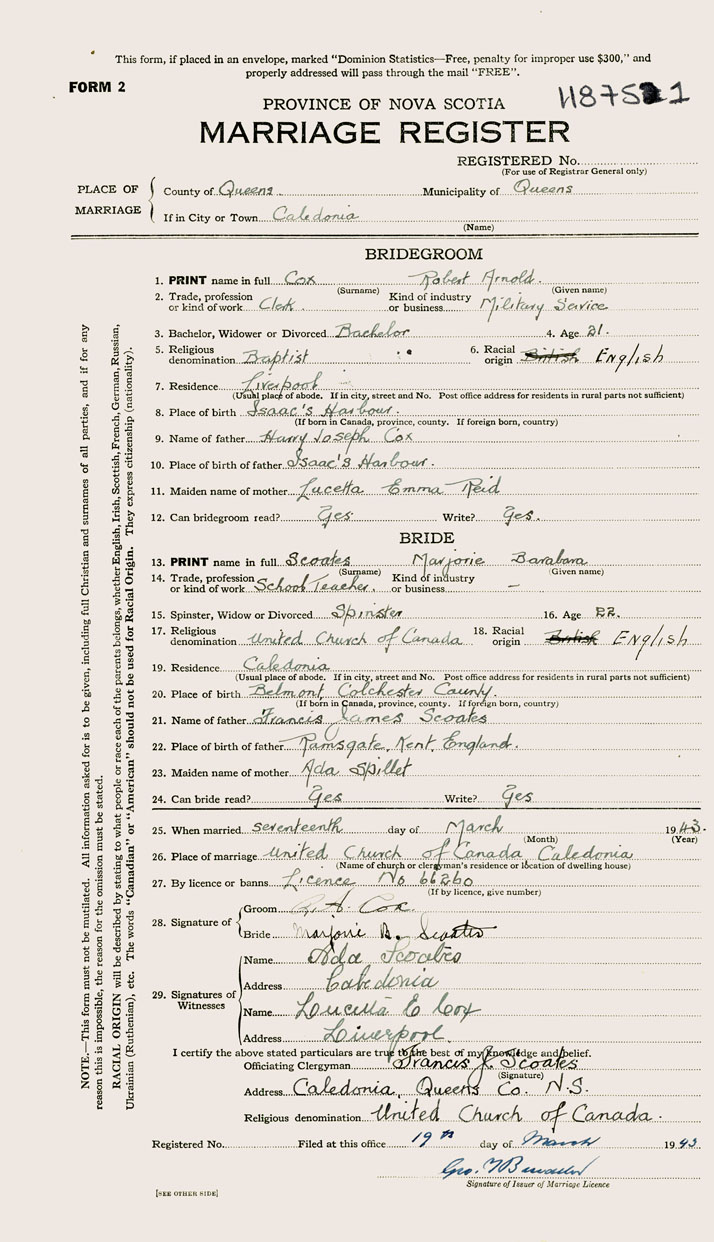 This form, if placed in an envelope, marked "Dominion Statistics—Free, penalty for improper use $300," and
properly addressed will pass through the mail "FREE".
FORM 2
PROVINCE OF NOVA SCOTIA
MARRIAGE REGISTER
REGISTERED No.
(For use of Registrar General only)
PLACE OF MARRIAGE
County of Queens. Municipality of Queens
If in City or Town Caledonia
(Name)
BRIDEGROOM
1. PRINT name in full Cox Robert Arnold.
(Surname) (Given name)
2. Trade, profession or kind of work Clerk. Kind of industry or business Military Service
3. Bachelor, Widower or Divorced Bachelor 4. Age 21.
5. Religious denomination Baptist 6. Racial origin British English
7. Residence Liverpool
(Usual place of abode. If in city, street and No. Post office address for residents in rural parts not sufficient)
8. Place of birth Isaac's Harbour.
(If born in Canada, province, county. If foreign born, country)
9. Name of father Harry Joseph Cox
10. Place of birth of father Isaac's Harbour.
11. Maiden name of mother Lucetta Emma Reid
12. Can bridegroom read? Yes Write? Yes.
BRIDE
13. PRINT name in full Scoates Marjorie Barabara
(Surname) (Given name)
14. Trade, profession or kind of work School Teacher. Kind of industry or business –
15. Spinster, Widow or Divorced Spinster 16. Age 22.
17. Religious denomination United Church of Canada 18. Racial origin British English
19. Residence Caledonia
(Usual place of abode. If in city, street and No. Post office address for residents in rural parts not sufficient)
20. Place of birth Belmont, Colchester County.
(If born in Canada, province, county. If foreign born, country)
21. Name of father Francis James Scoates
22. Place of birth of father Ramsgate, Kent, England.
23. Maiden name of mother Ada Spillet
24. Can bride read? Yes Write? Yes
25. When married seventeenth day of March 1943.
(Month) (Year)
26. Place of marriage United Church of Canada Caledonia
(Name of church or clergyman's residence or location of dwelling house)
27. By licence or banns Licence No 66260
(If by licence, give number)
28. Signature of
Groom R. A. Cox
Bride Marjorie B. Scoates
29. Signatures of Witnesses
Name Ada Scoates
Address Caledonia
Name Lucetta E Cox
Address Liverpool.
I certify the above stated particulars are true to the best of my knowledge and belief.
Officiating Clergyman Francis J. Scoates
(Signature)
Address Caledonia, Queens Co. N.S.
Religious denomination United Church of Canada.
Registered No. Filed at this office 19th day of March 1943
Geo.
Signature of Issuer of Marriage Licence
[SEE OTHER SIDE]
NOTE.—This form must not be mutilated. All information asked for is to be given, including full Christian and surnames of all parties, and if for any
reason this is impossible, the reason for the omission must be stated.
RACIAL ORIGIN will be described by stating to what people or race each of the parents belongs, whether English, Irish, Scottish, French, German, Russian,
Ukrainian (Ruthenian), etc. The words "Canadian" or "American" should not be used for Racial Origin. They express citizenship (nationality).